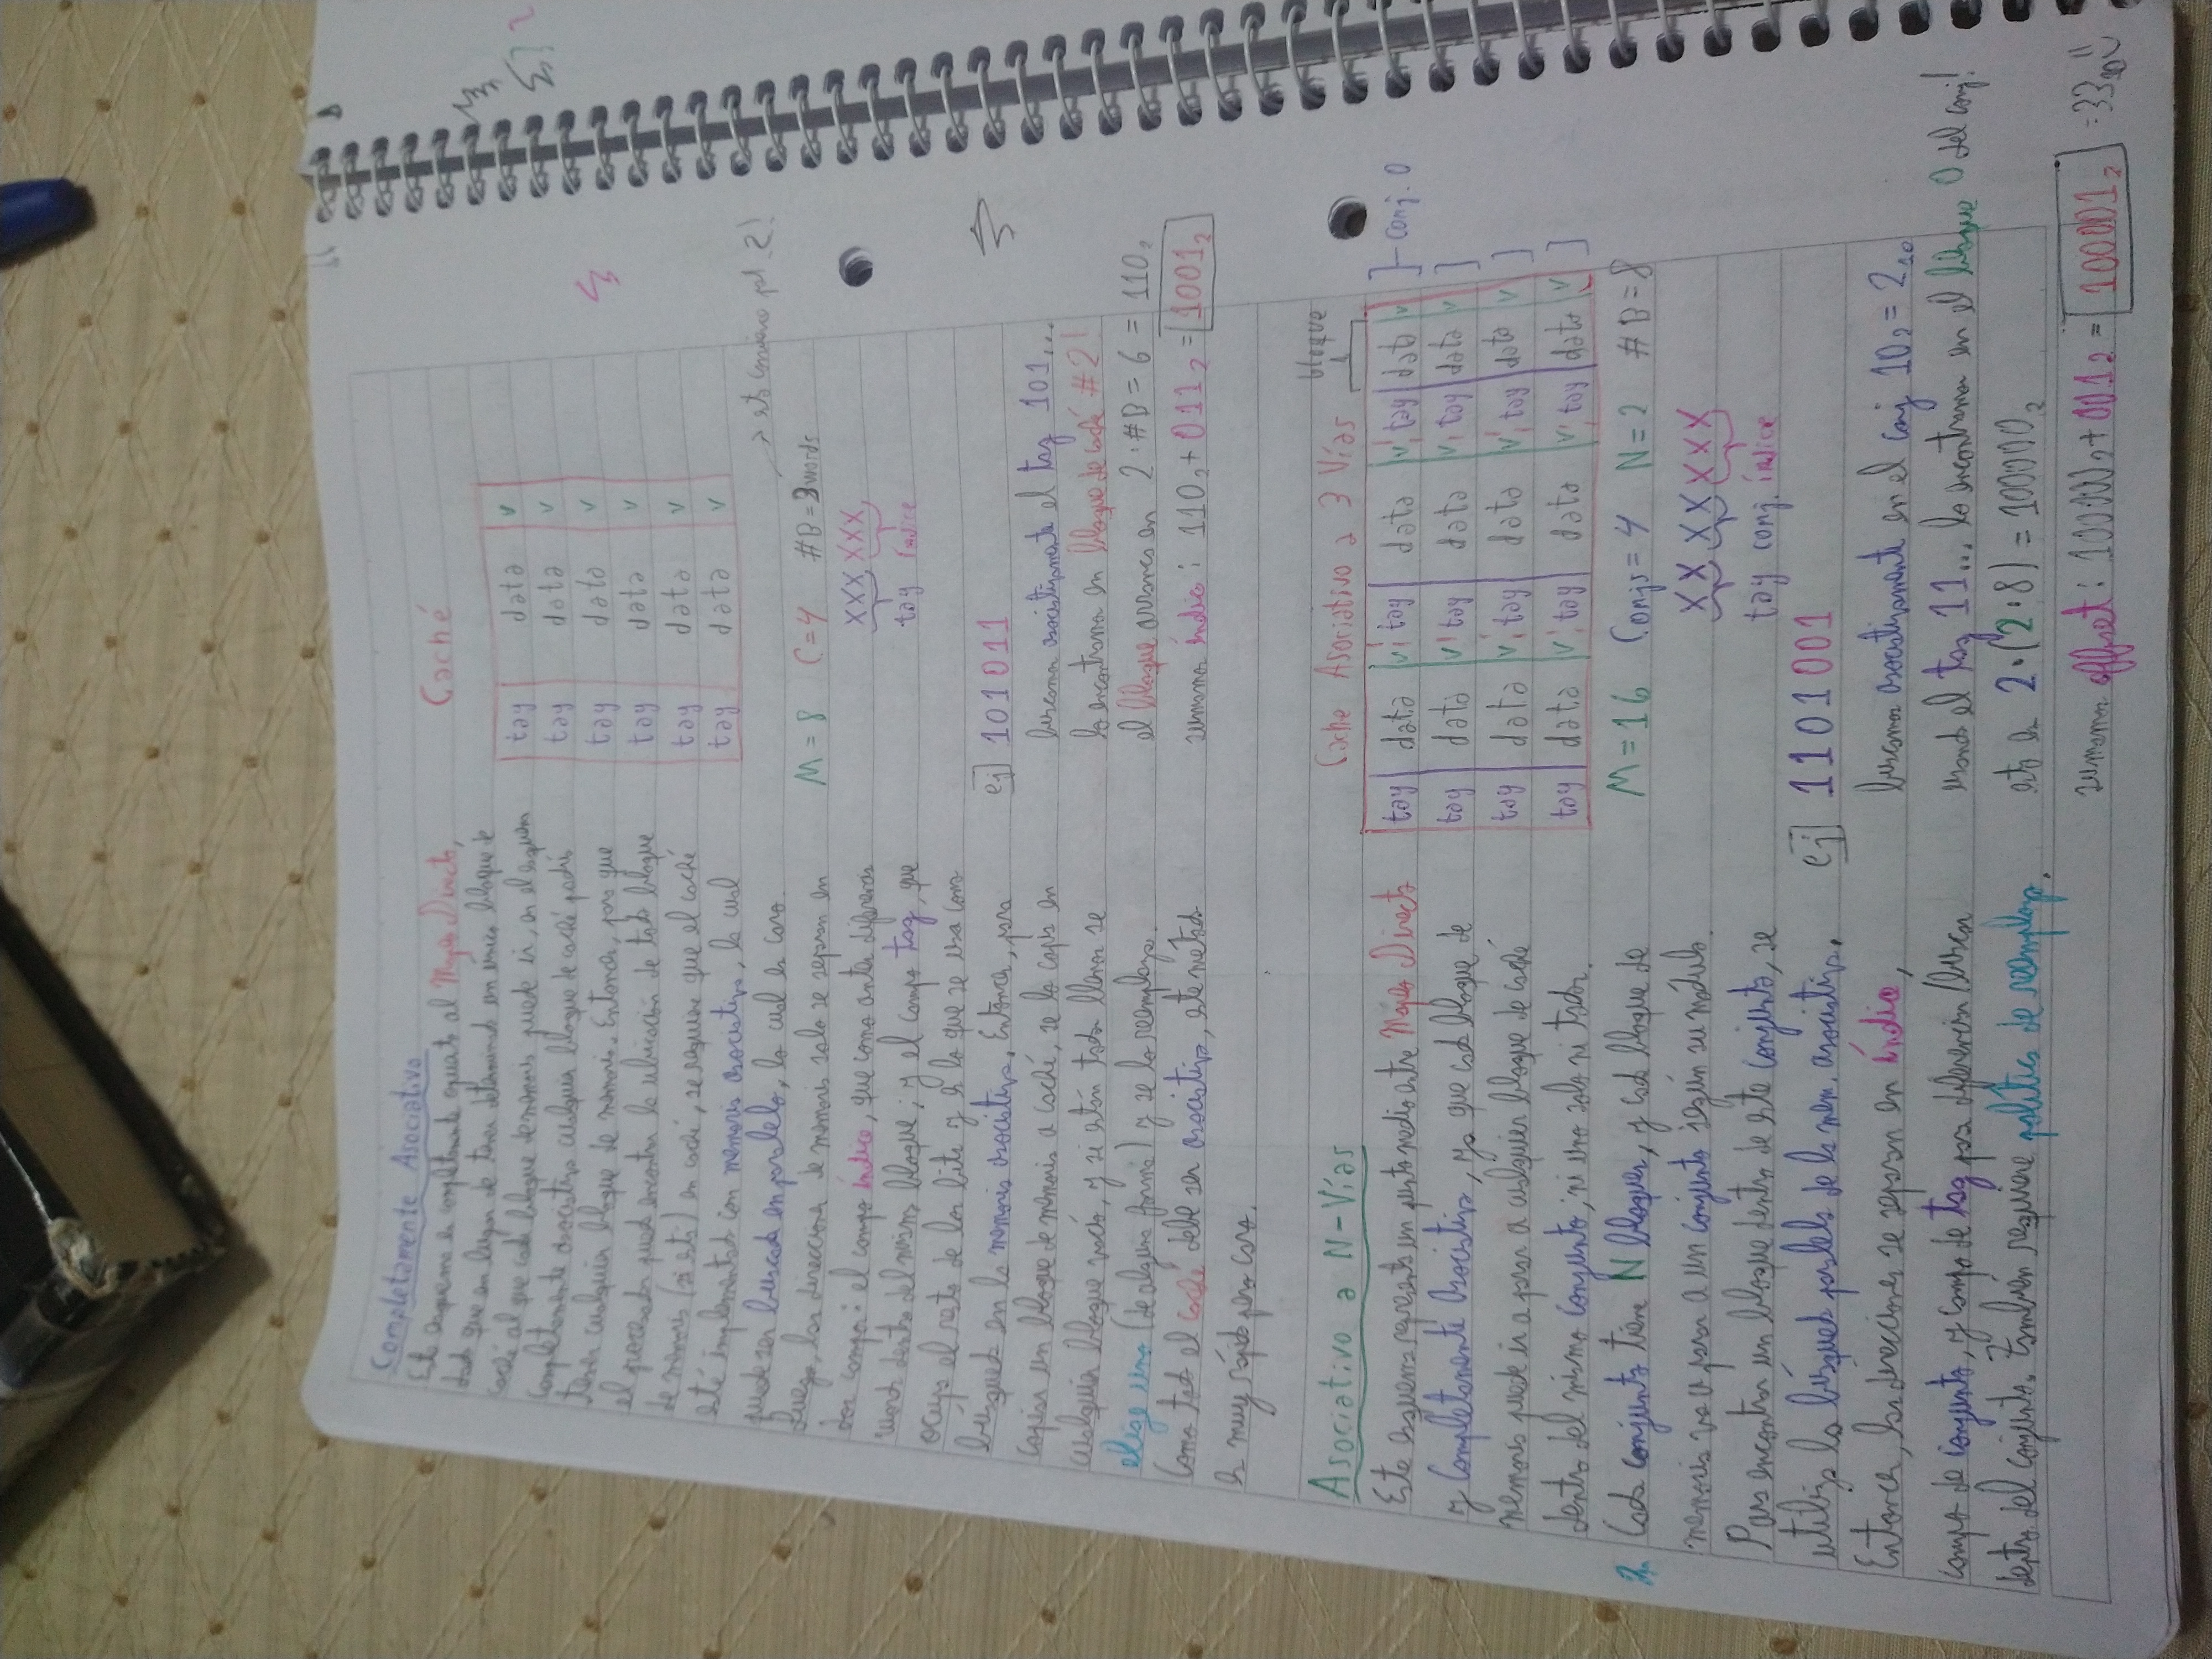 Completamente Asociativo
Este esquema es completamente opuesto al Mapeo Directo,
dado que en lugar de tener determinado un único bloque de
caché al que cada bloque de memoria puede ir, en el esquema
completamente asociativo cualquier bloque de caché podría
tener cualquier bloque de memoria. Entonces, para que
el procesador pueda encontrar la ubicación de todo bloque
de memoria (si está) en caché, se requiere que el caché
esté implementado con memoria asociativa, la cual
puede ser buscada en paralelo, lo cual es caro.
Luego, las direcciones de memoria solo se separan en
dos campos: el campo índice, que como antes diferencia
words dentro del mismo bloque; y el campo tag, que
ocupa el resto de los bits y es lo que se usa como
búsqueda en la memoria asociativa. Entonces, para
copiar un bloque de memoria a caché, se lo copia en
cualquier bloque vacío, y si están todos llenos se
elige uno (de alguna forma) y se lo reemplaza.
Como todo el caché debe ser asociativo, este método
es muy rápido pero caro.
Caché
tag data v
tag data v
tag data v
tag data v
tag data v
tag data v
→ esto conviene pt. 2!
M=8 C=4 #B=3words
XXX XXX
tag índice
ej 101011
buscamos asociativamente el tag 101...
lo encontramos en bloque de caché #2!
el bloque arranca en 2·#B = 6 = 110₂
sumamos índice: 110₂+011₂=1001₂
Asociativo a N-Vías
Este esquema representa un punto medio entre Mapeo Directo
y Completamente Asociativo, ya que cada bloque de
memoria puede ir a parar a cualquier bloque de caché
dentro del mismo conjunto; ni uno solo ni todos.
Cada conjunto tiene N bloques, y cada bloque de
memoria va a parar a un conjunto según su módulo.
Para encontrar un bloque dentro de este conjunto, se
utiliza la búsqueda paralela de la mem. asociativa.
Entonces, las direcciones se separan en índice,
campo de conjunto, y campo de tag para diferenciar/buscar
dentro del conjunto. También requiere política de reemplazo.
Cache Asociativo a 3 Vías
bloque
1
tag data v tag data v tag data v conj. 0
tag data v tag data v tag data v
tag data v tag data v tag data v
tag data v tag data v tag data v
M=16 Conjs=4 N=2 #B=8
XX XX XXX
tag conj. índice
ej 1101001
buscamos asociativamente en el conj 10₂ = 2₁₀
usando el tag 11... lo encontramos en el bloque 0 del conj!
esto es 2·(2·8) = 100000₂
sumamos offset: 100000₂+001₂ = 100001₂ =33₁₀